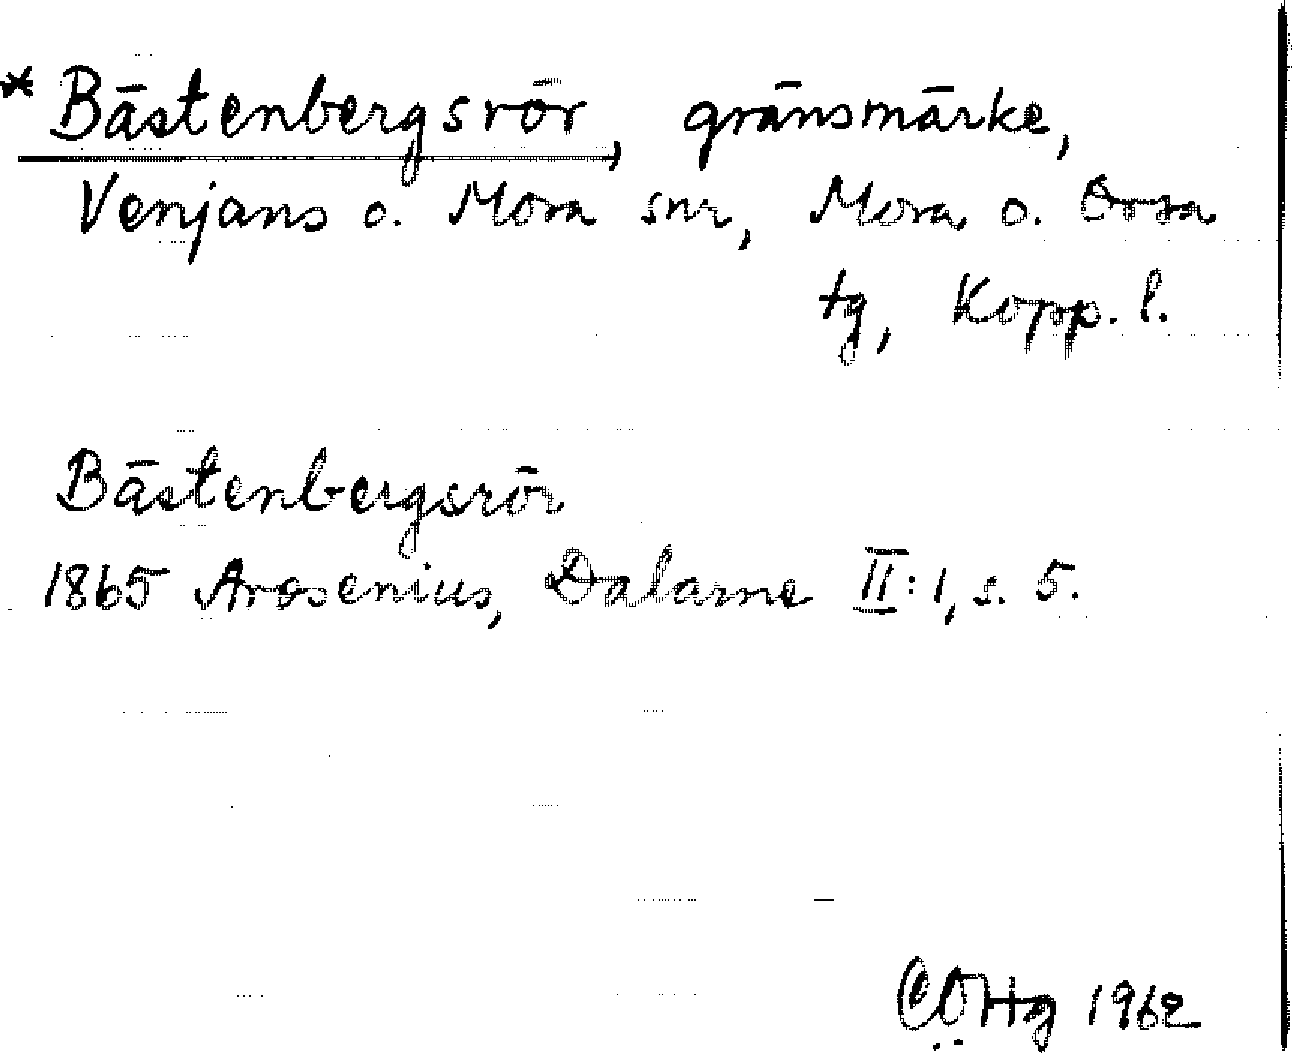 * Bästenbergsrör, gränsmärke,
Venjans o. Mora snr, Mora o. Orsa
tg, Kopp. l.
Bästenbergsrör
1865 Arosenius, Dalarne II:1, s. 5.
1962